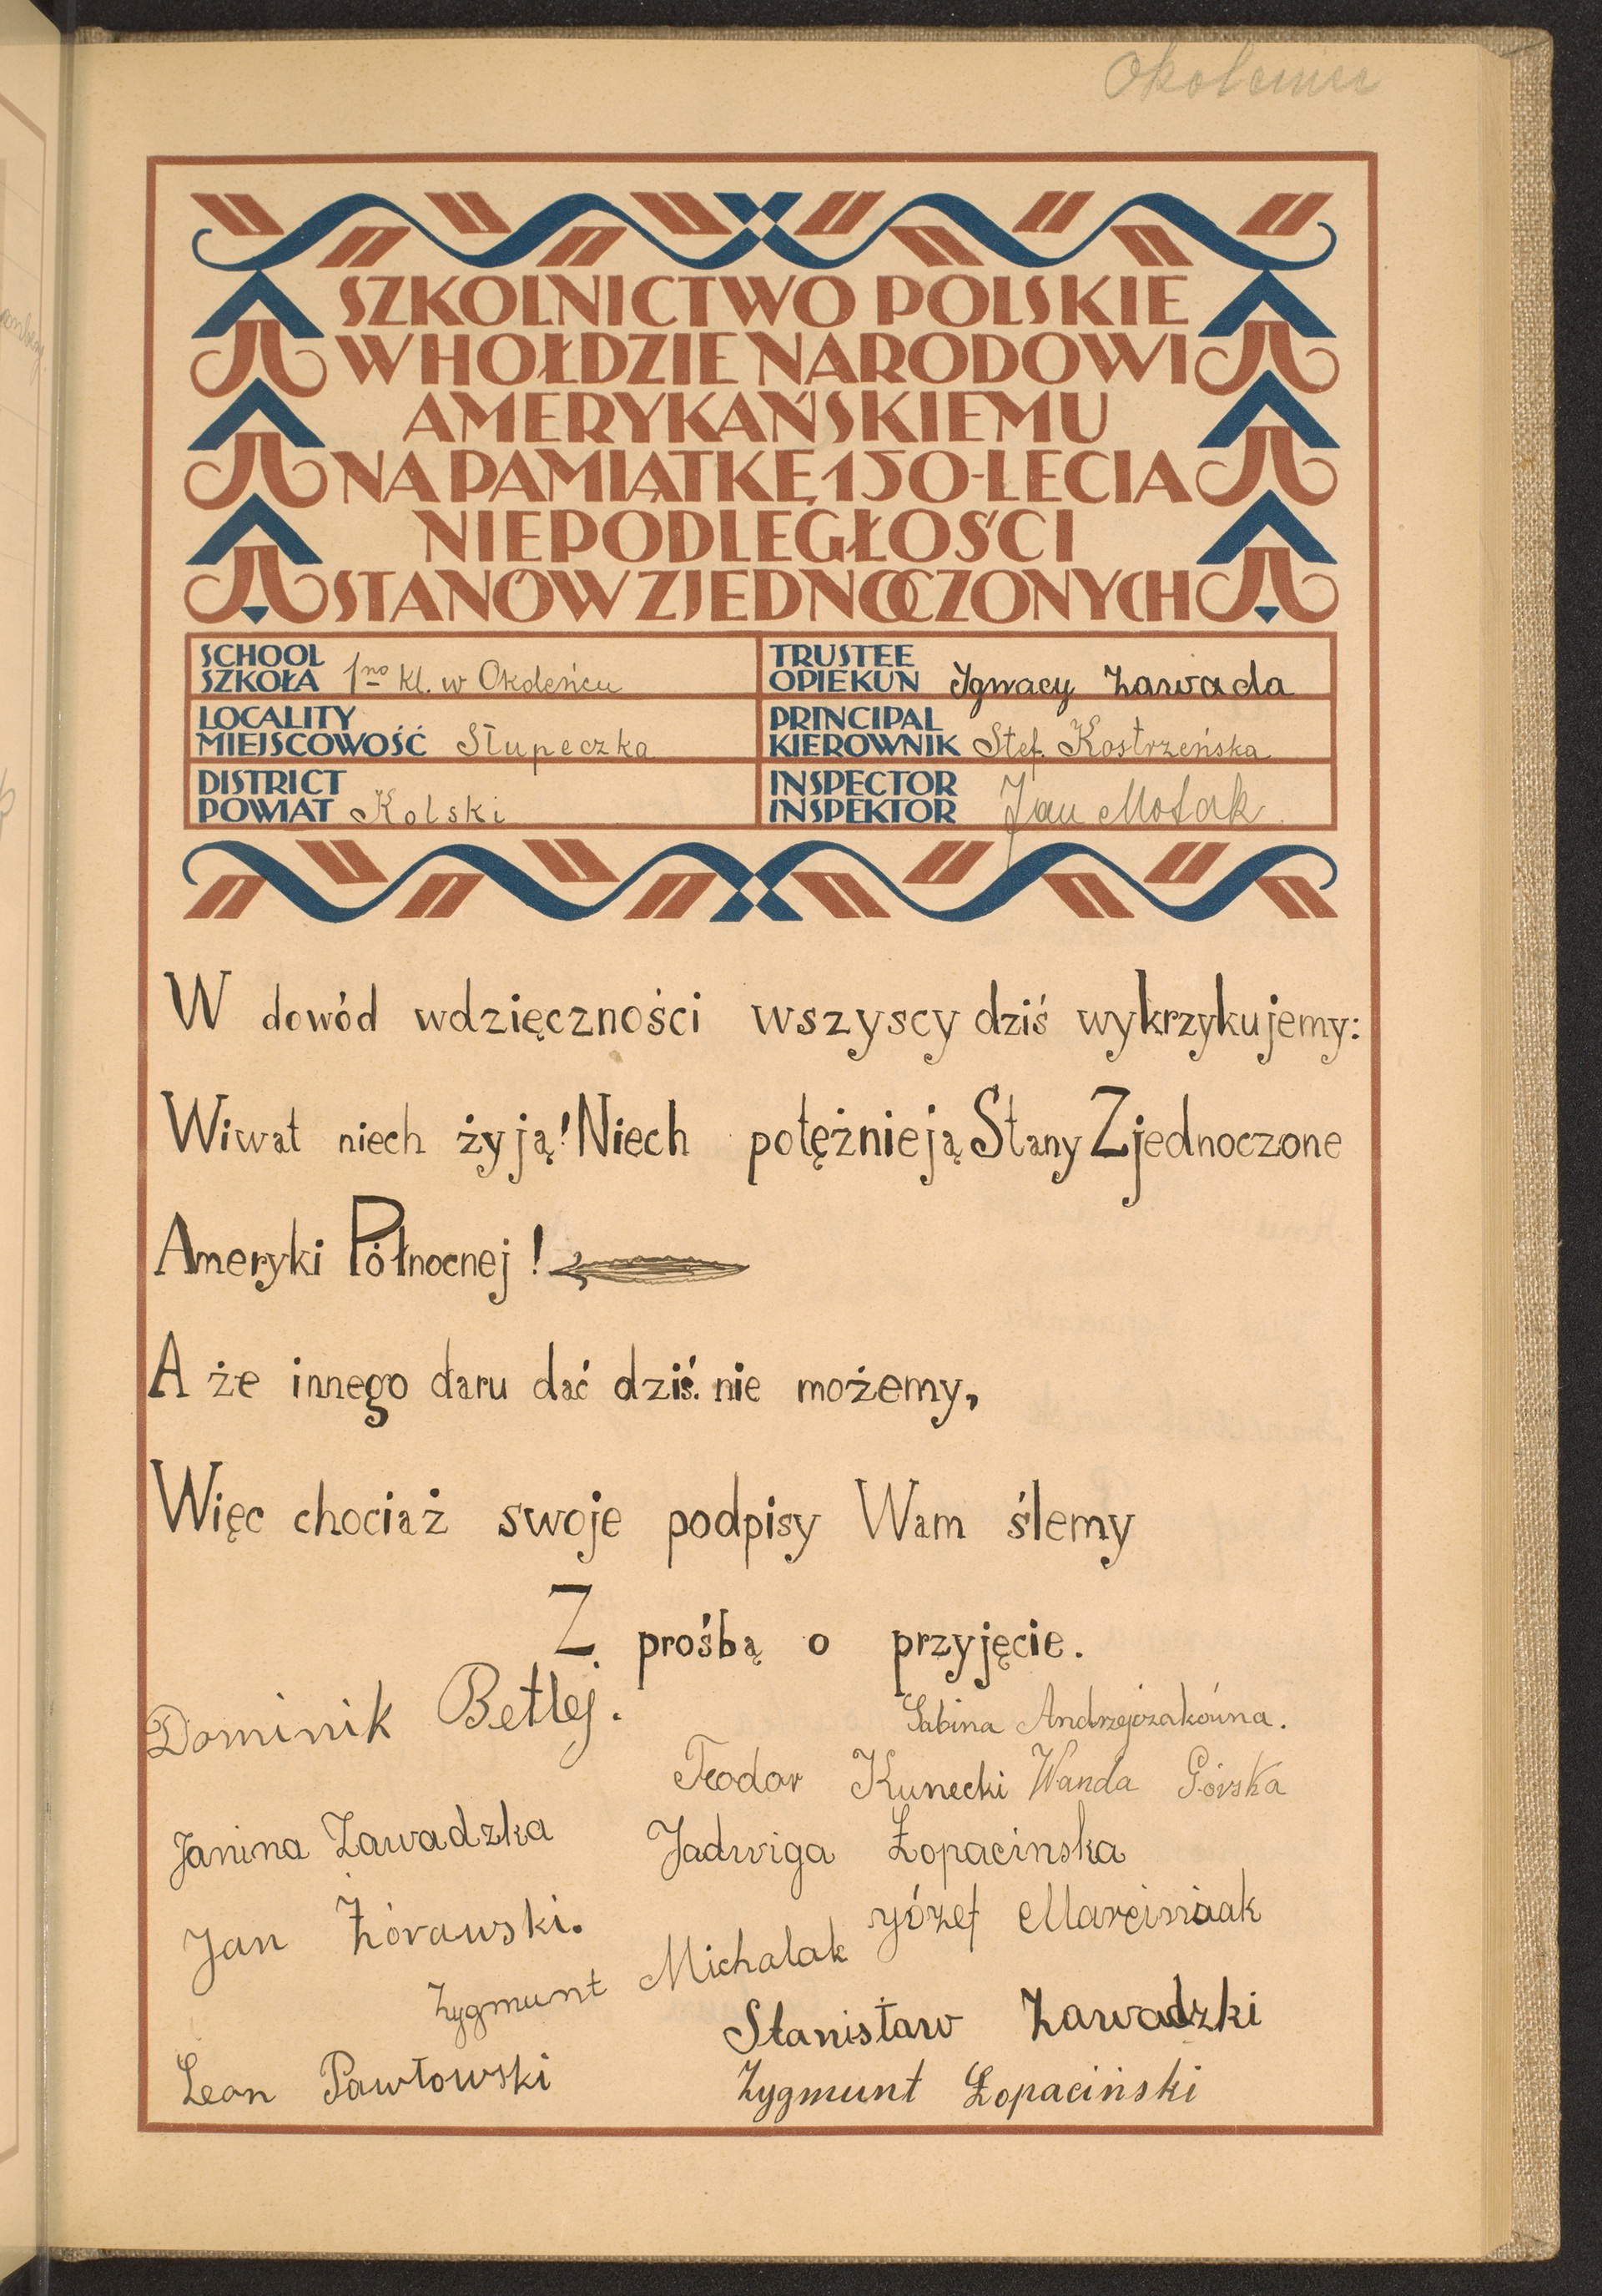 SZKOLNICTWO POLSKIE
W HOŁDZIE NARODOWI
AMERYKAŃSKIEMU
NA PAMIĄTKĘ 150-LECIA
NIEPODLEGŁOŚCI
STANÓW ZJEDNOCZONYCH
SCHOOL
SZKOŁA 1no kl. w Okoleńcu
TRUSTEE
OPIEKUN Ignacy Zawada
LOCALITY
MIEJSCOWOŚĆ Słupeczka
PRINCIPAL
KIEROWNIK Stef. Kostrzeńska
DISTRICT
POWIAT Kolski
INSPECTOR
INSPEKTOR Jan
W dowód wdzięczności wszyscy dziś wykrzykujemy:
Wiwat niech żyją! Niech potężnieją Stany Zjednoczone
Ameryki Północnej!
A że innego daru dać dziś. nie możemy,
Więc chociaż swoje podpisy Wam ślemy
Z prośbą o przyjęcie.
Dominik Betlej.
Sabina Andrzejczakówna.
Teodor Kunecki Wanda Górska
Janina Zawadzka Jadwiga Łopacinska
Jan Żórawski. Józef Marciniaak
Zygmunt Michalak
Stanisław Zawadzki
Leon Pawłowski Zygmunt Łopaciński